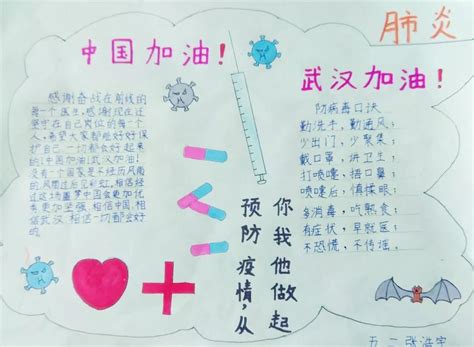 肺炎
中国加油!
武汉加油!
感谢奋战在前线的
每一个医生,感谢现在还
坚守在自己岗位的每一个
人,希望大家都能好好保
护自己一切都会好起来
的!中国加油!武汉加油!
没有一个国家是不经历风雨
的,风雨过后见彩虹,相信经
过这场噩梦中国会更加优
秀更加坚强,相信中国,相
信武汉,相信一切都会好
的
防病毒口诀
勤洗手,勤通风;
少出门,少聚集;
戴口罩,讲卫生;
打喷嚏,捂口鼻;
喷嚏后,慎揉眼;
多消毒,吃熟食;
有症状,早就医;
不恐慌,不传谣。
预防疫情,从
你我他做起
五二张浩宇